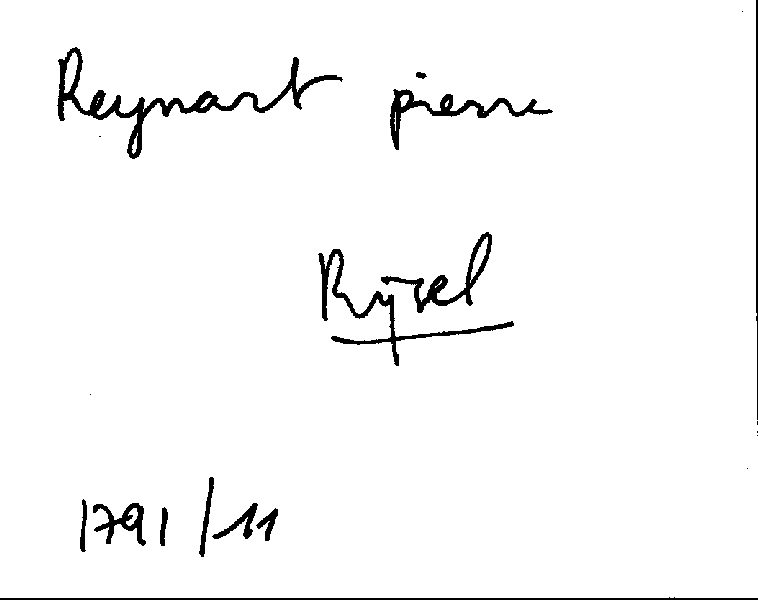 Reynart pierre
Rijsel
1791/11